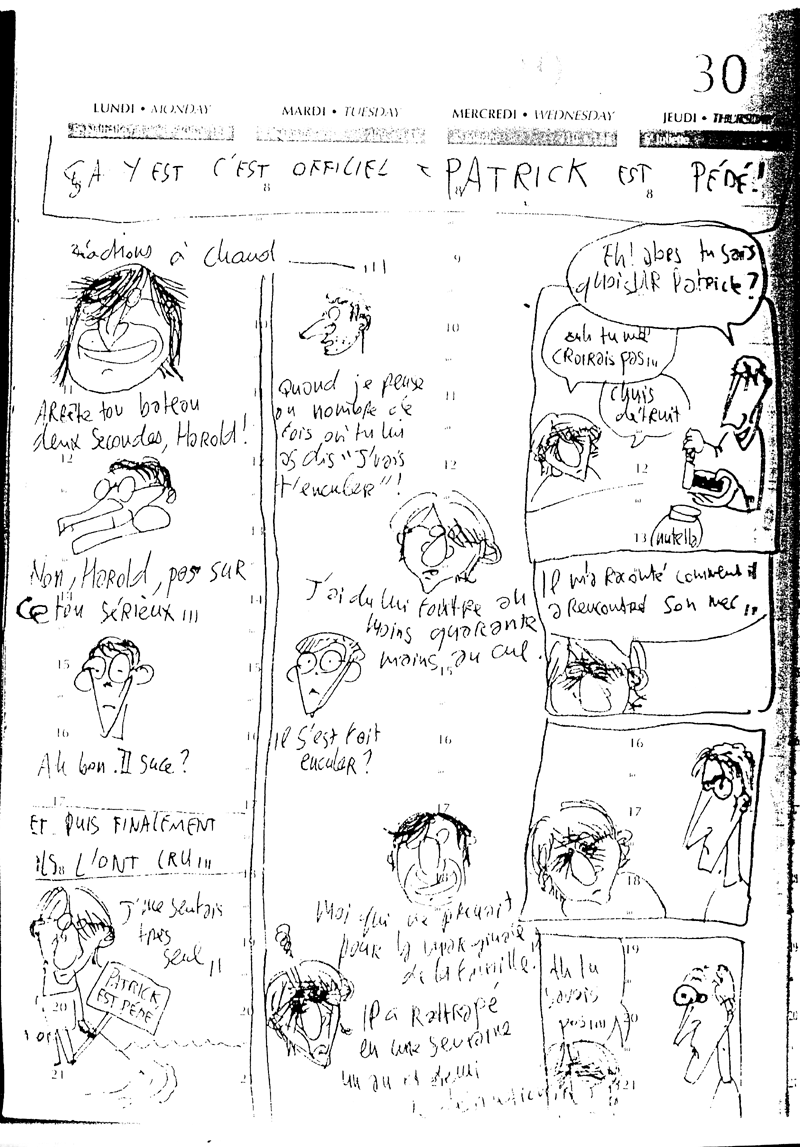 30
LUNDI • MONDAY
MARDI • TUESDAY
MERCREDI • WEDNESDAY
JEUDI • THURSDAY
ÇA Y EST C'EST OFFICIEL PATRICK EST PÉDÉ!
8
8
8
Réactions à chaud
Arrête ton bateau
deux secondes, Harold!
12
Non, Harold, pas sur
ce ton sérieux...
15
16
Ah bon. Il suce?
17
ET PUIS FINALEMENT
ILS L'ONT CRU...
J'me sentais
très
seul
PATRICK
EST PÉDÉ
20
21
Quand je pense
au nombre de
fois où tu lui
as dis "J'vais
t'enculer"!
9
10
11
12
J'ai du lui foutre au
moins quarante
mains au cul.
15
Il s'est fait
enculer?
16
17
Moi qui me prenait
pour la marginale
de la famille.
Il a rattrapé
en une semaine
un an et demi
Eh! Alors tu sais
quoi sur Patrick?
Euh tu me
croirais pas...
Chuis
détruit
12
13
nutella
Il m'a raconté comment il
a rencontré son mec
16
17
18
19
Ah tu
savais
pas...
20
21